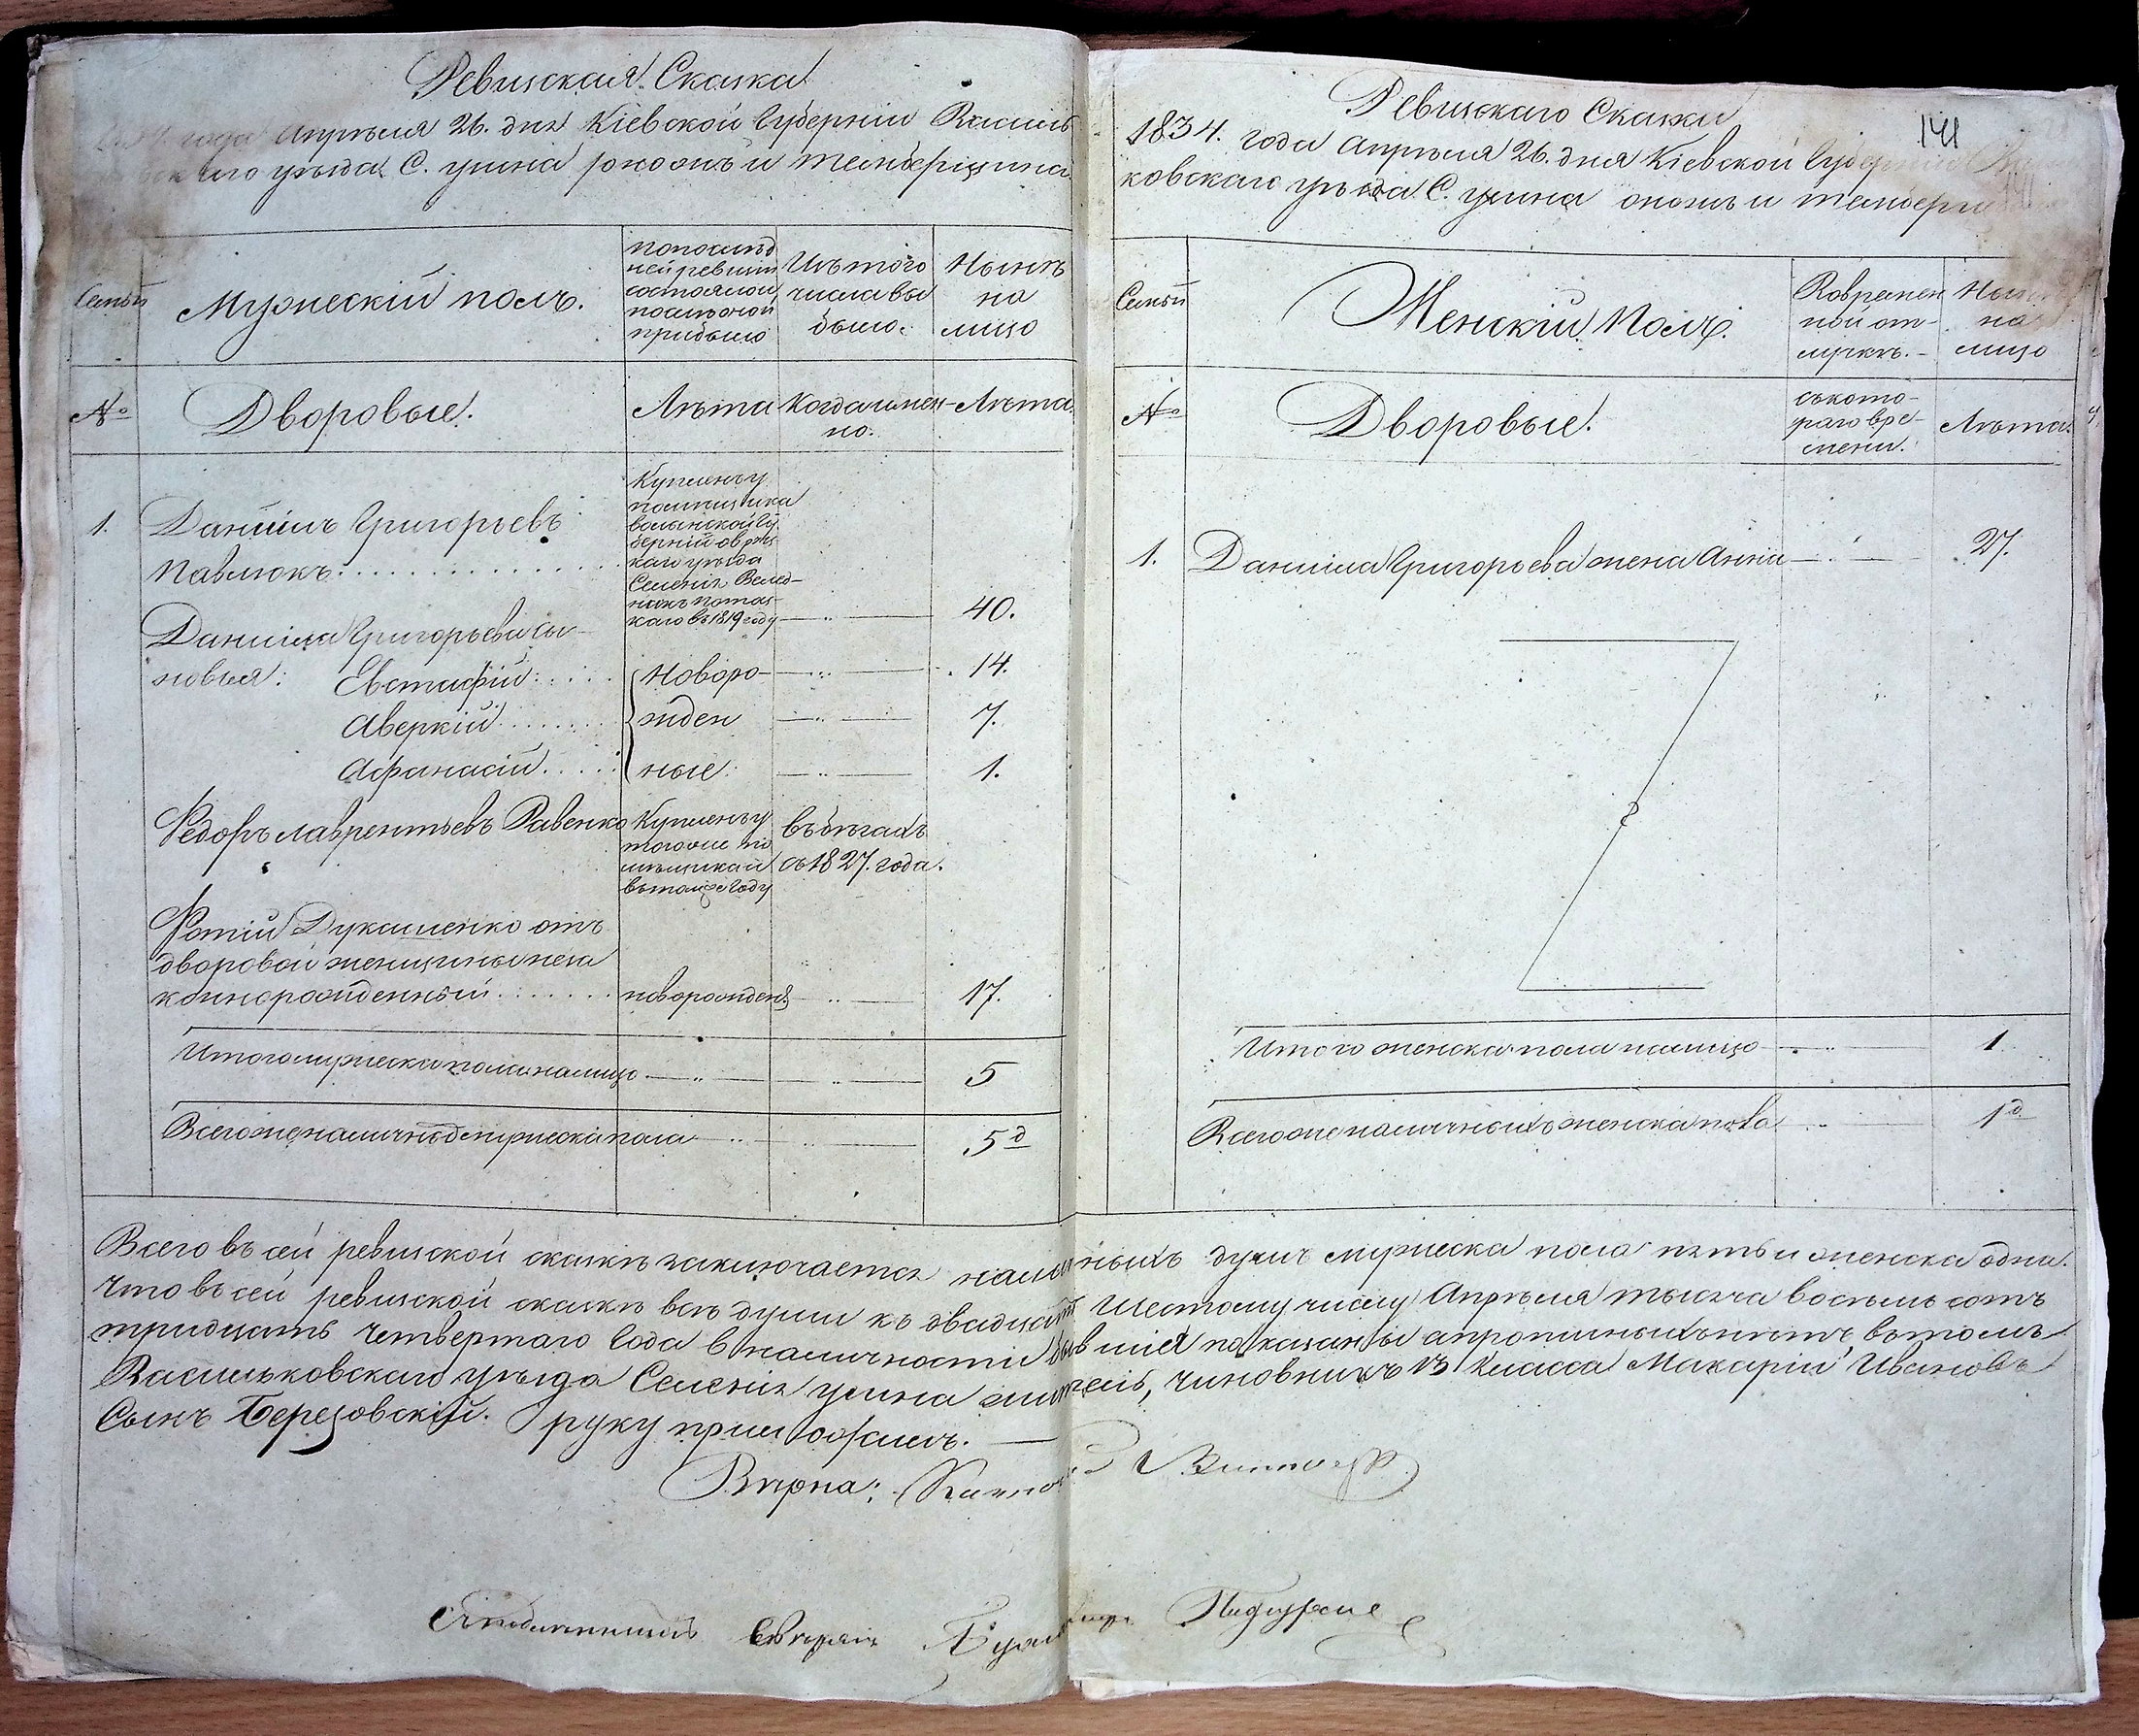 Ревизская Сказка
года Апрѣля 26. дня Кіевской Губерніи Василь
уѣзда С. уліна и
Семьи
Мужескій полъ.
Попослѣд
ней ревизіи
состояло и
послѣ оной
прибыло
Изъ того
числа вы
было.
Нынѣ
на
лицо
№
Дворовые.
Лѣта
Когда имен
но.
Лѣта
1.
Даніилъ Григорьевъ
Павлюкъ
Купленъ у
помѣщика
волынской гу
берній овруч
каго уѣзда
Селенія
Потоц
каго въ 1819 году
40.
Даніила Григорьева сы
новья: Евстафій
Новоро
14.
Аверкій
жден
7.
Афанасій
ные
1.
Федоръ лаврентьевъ Равенко
Купленъ у
тогоже по
мѣщика и
втомже году
въбѣгахъ
съ 1827. года.
Фотій Дукашенко отъ
дворовой женщины неза
коннорожденный
новорожденъ
17.
Итого мужеска пола налицо
5
Всего же наличнодъ мужеска пола
5 д
Ревизскаго Сказки
141
1834. года Апрѣля 26. дня Кіевской
ковскаго уѣзда С. уліна и
Семьи
Женскій Полъ.
Вовремен
ной от
лучкѣ.
Нын
на
лицо
№
Дворовые.
съкото
раго вре
мени.
Лѣта.
1.
Даніила Григорьева жена Анна
27.
Итого женска пола налицо
1
Всего же наличныхъ женска пола
1 д
Всего въ сей ревизской сказкѣ заключается наличныхъ душъ мужеска пола пять и женска одна.
Что въ сей ревизской сказкѣ всѣ души къ двадцать Шестому числу Апрѣля тысяча восемь сотъ
тридцать Четвертаго Года в наличности бывшіе показаны апропиныхънѣтъ, втомъ
Васильковскаго уѣзда Селенія уліна жите­ль, чиновникъ 13 Класса Макарій Ивановъ
Сынъ Березовскій. руку приложилъ.
Вѣрна: